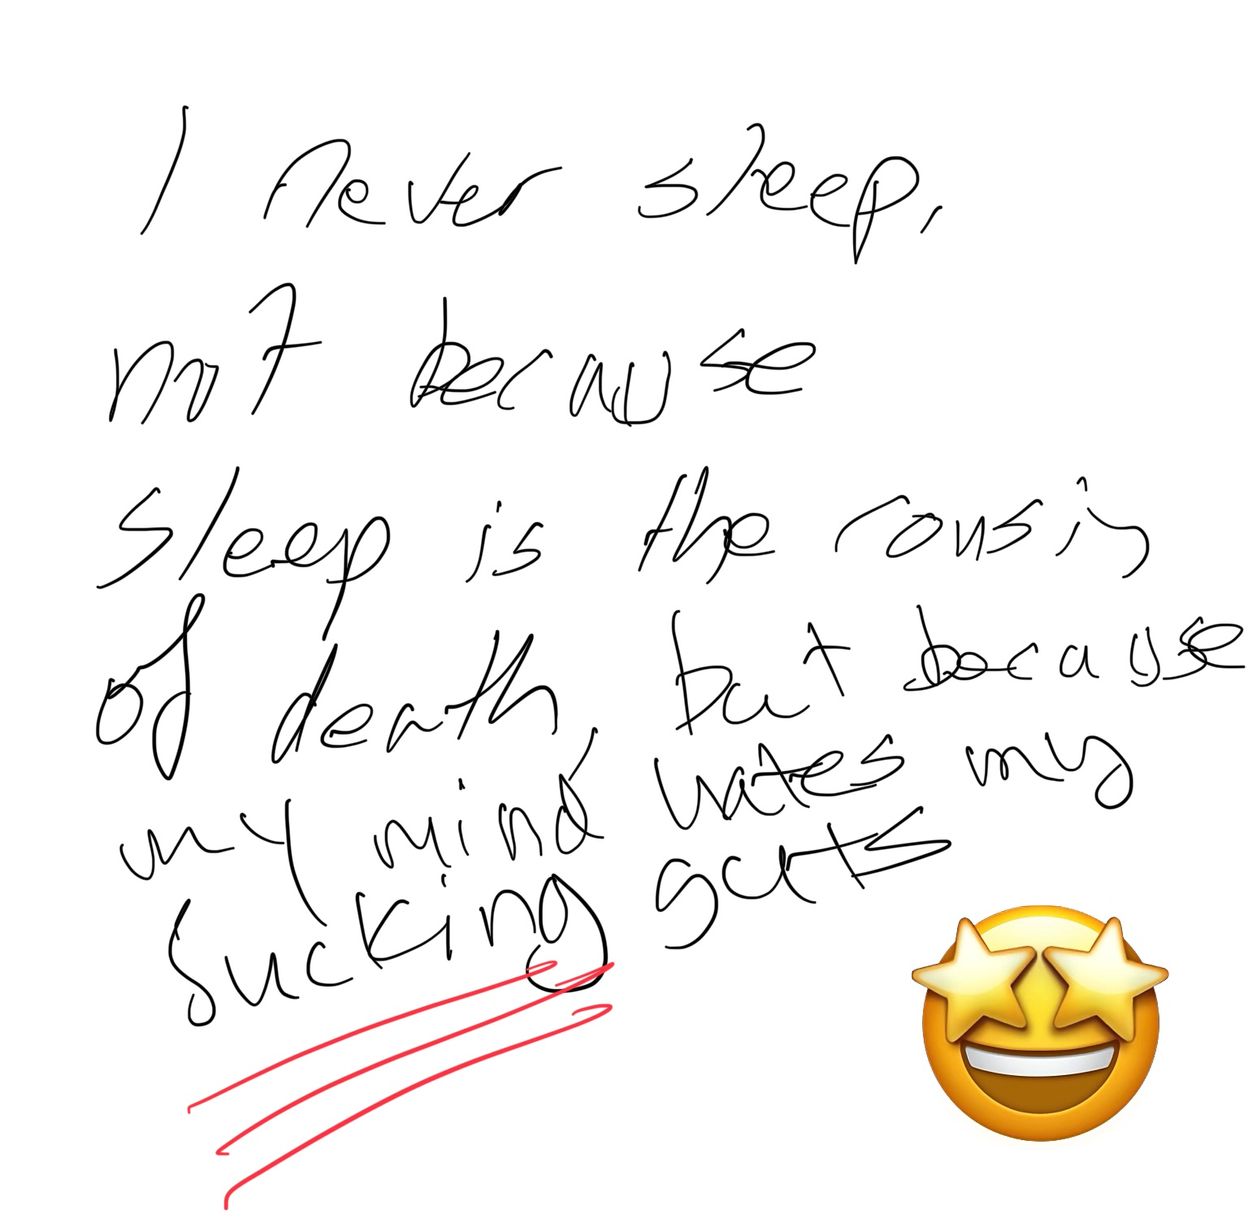 I never sleep,
not because
sleep is the cousin
of death, but because
my mind hates my
sucking guts